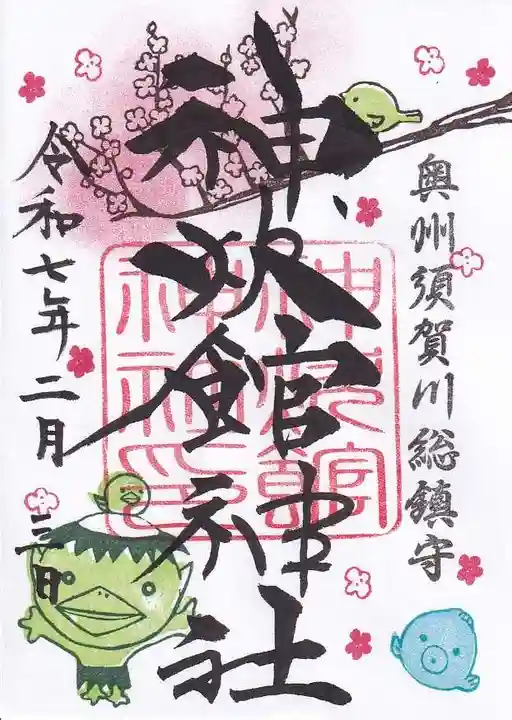 奥州須賀川総鎮守
神炊館神社
神炊館
神社印
令和七年二月三日